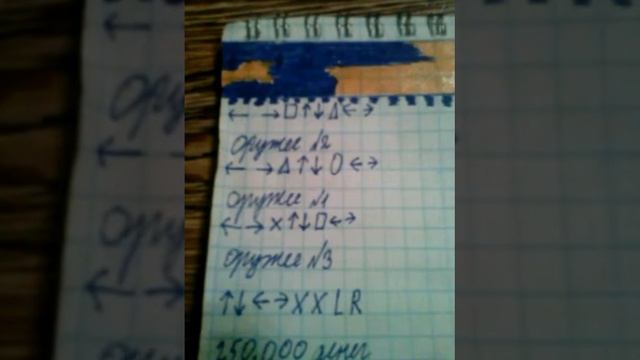 ← → □ ↑ ↓ Δ ← →
оружее №2
← → Δ ↑ ↓ O ← →
оружее №1
← → X ↑ ↓ □ ← →
оружее №3
↑ ↓ ← → X X L R
250.000 денег